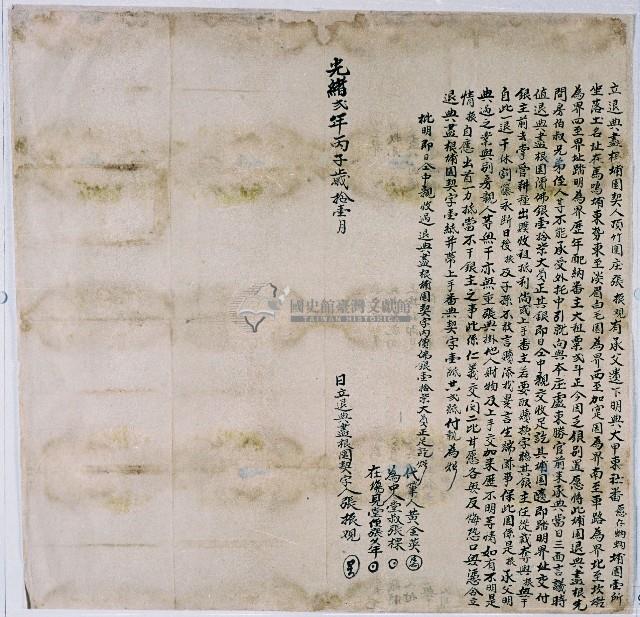 立退典盡根埔園契人頂竹圍庄張振观有承父遺下明典大甲東社番愿仔蚋蚋埔園壹所
坐落土名址在馬鳴埔東勢東至淡眉山毛園為界西至加定園為界南至車路為界北至坎墘
為界四至界址踏明為界歷年配納番主大租粟弍斗正今因乏銀別置愿將此埔園退典盡根先
問房伯叔兄弟侄人等不能承受外托中引就向與本庄處東勝官前來承典當日三面言議時
值退典盡根園價佛銀壹拾柒大員正其銀即日仝中親交收足訖其埔園隨即踏明界址交付
銀主前去掌管耕種出贌收租抵利尚或上手番主若要取贖 字 其銀主任從裁 與振無干
自此一退千休割藤永斷日後振及子孫不敢言贖添找異言生端滋事保此園係是振承父明
典過之業與別房親人等無干亦無重張典掛他人財物及上手交加來歷不明等情如有不明是
情振自應出首一力抵當不干銀主之事此係仁義交関二比甘愿各無反悔恐口無憑今立
退典盡根埔園契字壹紙并帶上手番典契字壹紙共弍紙付執為炤
批明即日仝中親收過退典盡根埔園契字內價佛銀壹拾柒大員正足訖炤
代筆人黃全英
為中人堂叔張粿
在塲見堂侄張文年
光緒弍年丙子歲拾壹月
日立退典盡根園契字人張振观
國史館臺灣文獻館
TAIWAN HISTORICA